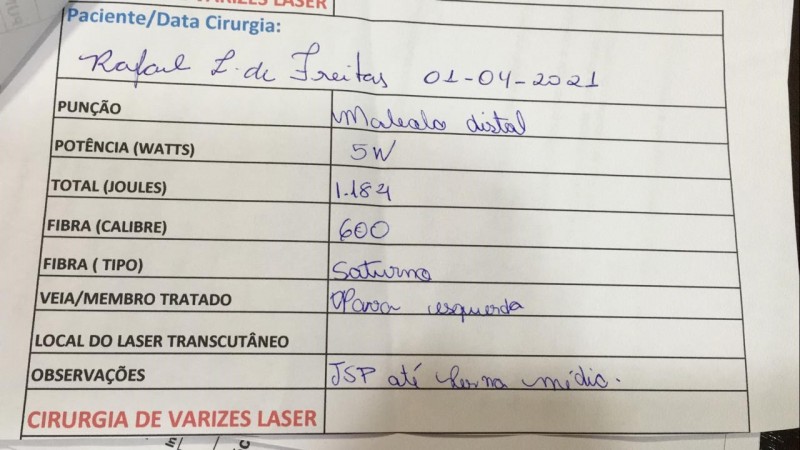 DE VARIZES LASER
Paciente/Data Cirurgia:
Rafael L. de Freitas 01-04-2021
PUNÇÃO Maleolo distal
POTÊNCIA (WATTS) 5W
TOTAL (JOULES) 1.184
FIBRA (CALIBRE) 600
FIBRA ( TIPO) Saturno
VEIA/MEMBRO TRATADO esquerda
LOCAL DO LASER TRANSCUTÂNEO
OBSERVAÇÕES JSP até médio.
CIRURGIA DE VARIZES LASER